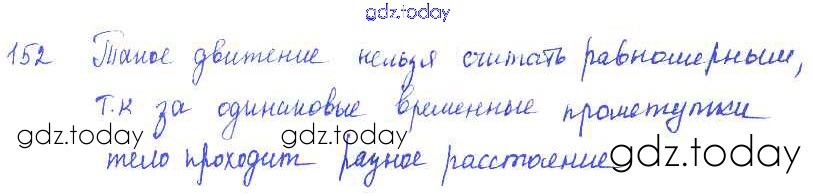 gdz.today
152 Такое движение нельзя считать равномерным,
т.к за одинаковые временные промежутки
gdz.today gdz.today
тело проходит разное расстояние gdz.today